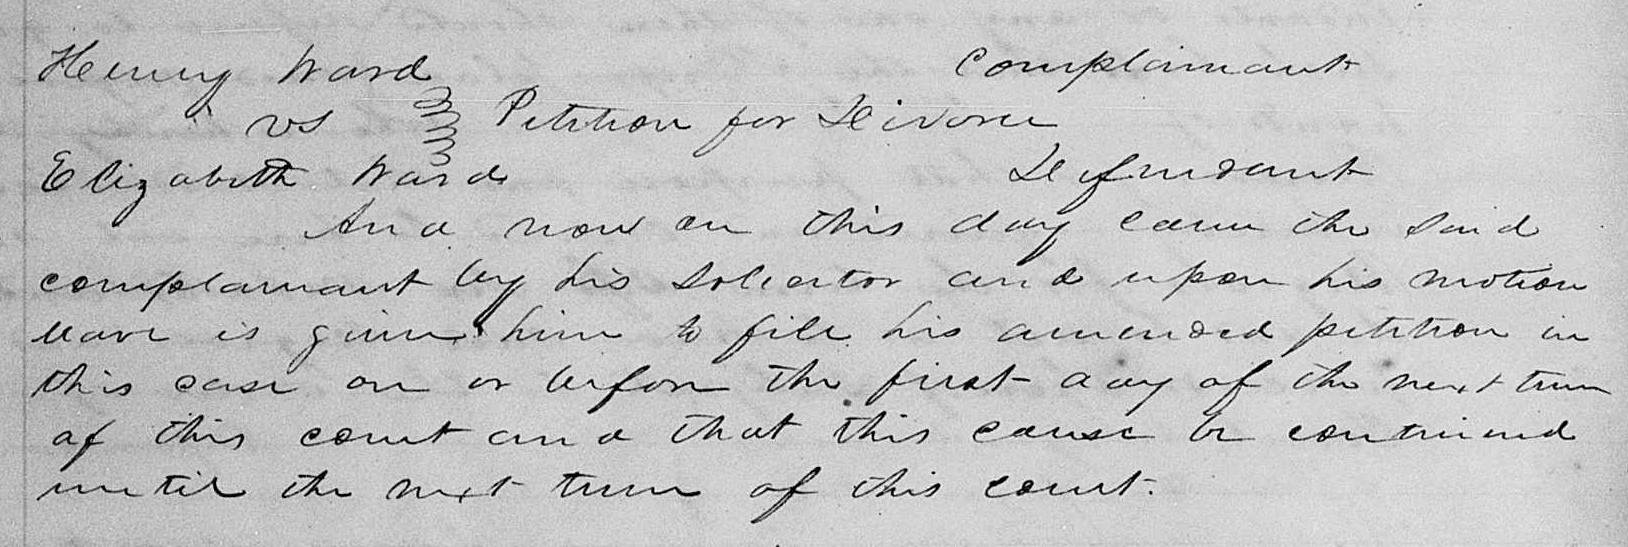 Henry Ward Complainant
vs Petition for Divorce
Elizabeth Ward Defendant
And now on this day came the said
complainant by his solicitor and upon his motion
leave is given him to file his amended petition in
this case on or before the first day of the next term
of this court and that this cause be continued
until the next term of this court.